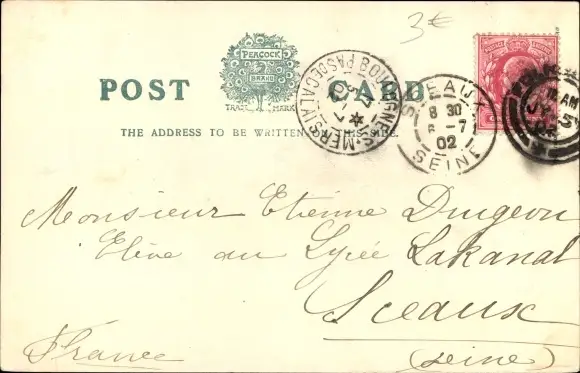 3€
PEACOCK
BRAND
TRADE MARK
POST CARD
THE ADDRESS TO BE WRITTEN ON THIS SIDE.
BOULOGNE-S-MER PAS-DE-CALAIS
SCEAUX
8 30
-7
02
SEINE
AM
Monsieur Etienne Dugeon
Elève au Lycée Lakanal
Sceaux
France
(Seine)